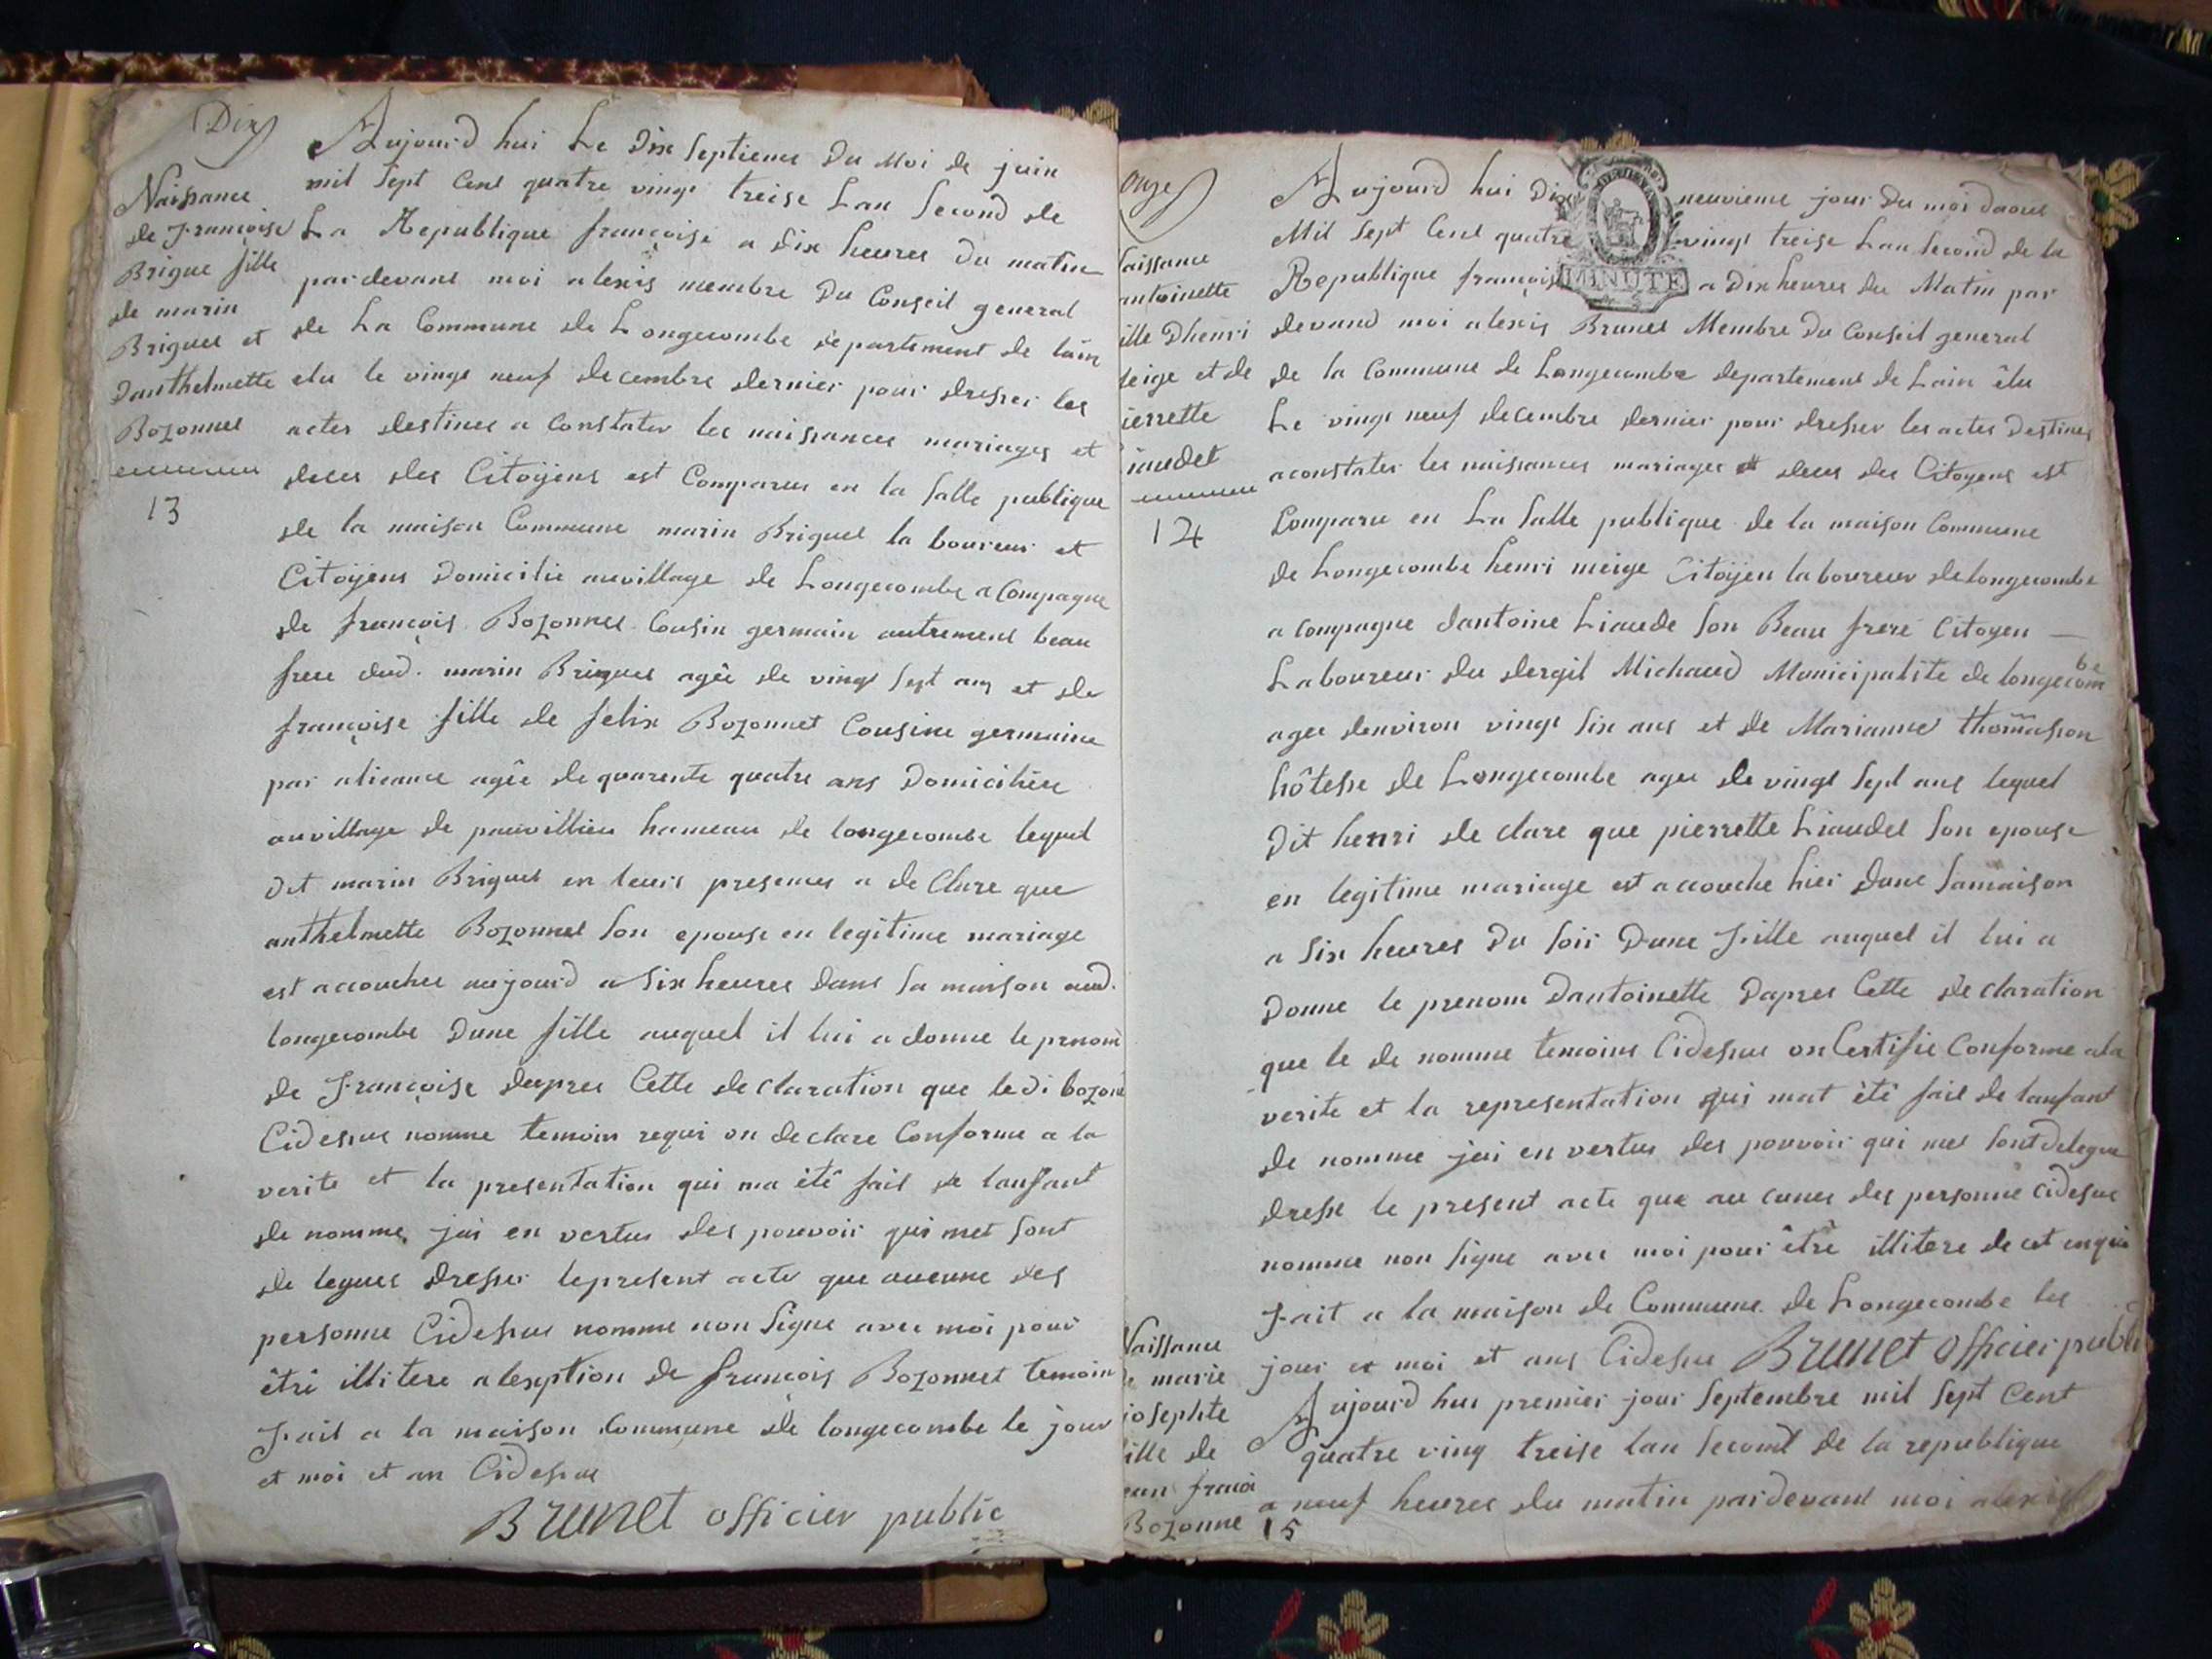 Dix
Naissance
de Françoise
Brigue fille
de marin
Brigues et
Danthelmette
Bozonnet
13
Aujourd hui Le Dix septieme Du Moi de juin
mil sept cent quatre vingt treise Lan second de
La Republique françoise a dix heures du matin
pardevant moi alexis membre Du Conseil general
de La Commune de Longecombe departement de lain
elu le vingt neuf decembre dernier pour dresser les
actes destines a Constater les naissances mariages et
deces des Citoÿens est Comparus en la salle publique
de la maison Commune marin Briguet la boureur et
Citoÿens Domicilie auvillage de Longecombe a Compagne
de françois Bozonnet Cousin germain autrement beau
frere dud. marin Brigues agêe de vingt sept ans et de
françoise fille de felix Bozonnet Cousine germaine
par alieance agêe de quarente quatre ans Domicilièe
auvillage de pauvillieu hameau de longecombe lequel
dit marin Briguet en leurs presences a de Clare que
anthelmette Bozonnet son epouse en legitime mariage
est accouchee aujourd a Six heures dans sa maison aud.
longecombe Dune fille auquel il lui a donne le prnom
de Françoise dapres Cette de claration que le di bozone
Cidessus nomme temoin requi on declare Conforme a la
verite et la presentation qui ma étê fait de lanfant
de nomme jai en vertus des pouvoir qui met sont
de legues dresser lepresent acte que aucune des
personne Cidessus nomme non Signe avec moi pour
être illitere alexption de françois Bozonnet temoin
Fait a la maison Commune de longecombe le jour
et moi et an Cidessus
Brunet officier public
Onze
aissance
antoinette
ille Dhenri
eige et de
ierrette
iaudet
14
Aujourd hui Dix neuvieme jour Du moi daout
Mil sept Cent quatre vingt treise Lan second de la
Republique françois a Dix heures du Matin par
MINUTE
devand moi alexis Brunet Membre Du Conseil general
de la Commune de Longecombe departement de Lain êlu
Le vingt neuf decembre dernier pour dresser les actes Destines
aconstater les naissances mariages et deces des Citoyens est
Comparu en La Salle publique de la maison Commune
de Longecombe henri meige Citoÿen laboureur delongecombe
a compagne dantoine Liaude son Beau frere Citoyen
Laboureur du dergit Michaud Municipaliste de longecombe
agee denviron vingt six ans et de Marianne thomasson
hôtesse de Longecombe agee de vingt sept ans lequel
Dit henri de clare que pierrette Liaudet son epouse
en legitime mariage est accouche hier dans samaison
a six heures Du soir Dune Fille auquel il lui a
Donne le prenom Dantoinette Dapres Cette de claration
que le de nomme temoins Cidessus on Certifie Conforme ala
verite et la representation qui mat étê fait de lanfant
de nomme jai en vertus des pouvoir qui met sont delegue
dresse le present acte que au cunes des personne cidessus
nomme non signe avec moi pour être illitere de cet enqui
Fait a la maison de Commune de Longecombe les
jour et moi et ans Cidessus Brunet Officier publi
Naissance
marie
josephte
ille de
ean franoi
Bozonne
15
Aujourd hui premier jour Septembre mil sept Cent
quatre ving treise lan second de la republique
a neuf heures du matin pardevant moi alexis